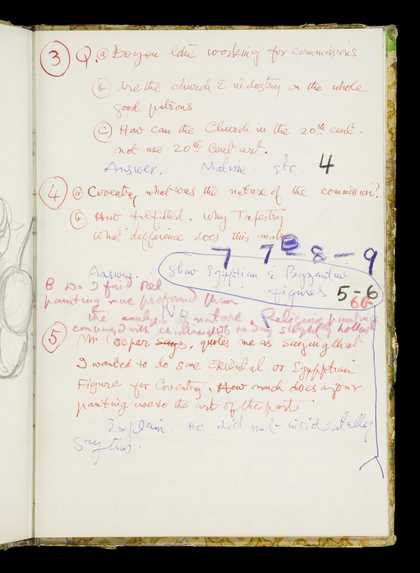 3 Q. a Do you like working for commissions
b Are the church & industry on the whole
good patrons
c How can the Church in the 20th cent.
not use 20th cent art.
Answer. etc. 4
4 a Coventry what was the nature of the commission?
b How fulfilled. Why Tapestry
What difference does this make
7 7 8 - 9
Answer. Show Egyptian & Byzantine
figures 5-6
B Do I find
painting more profound than
the No nature. Religious painting
5 Mr Cooper says, quotes me as saying that
I wanted to do some Oriental or Egyptian
Figure for Coventry. How much does your
painting owe to the art of the past
Explain. He did not incidentally
say this.